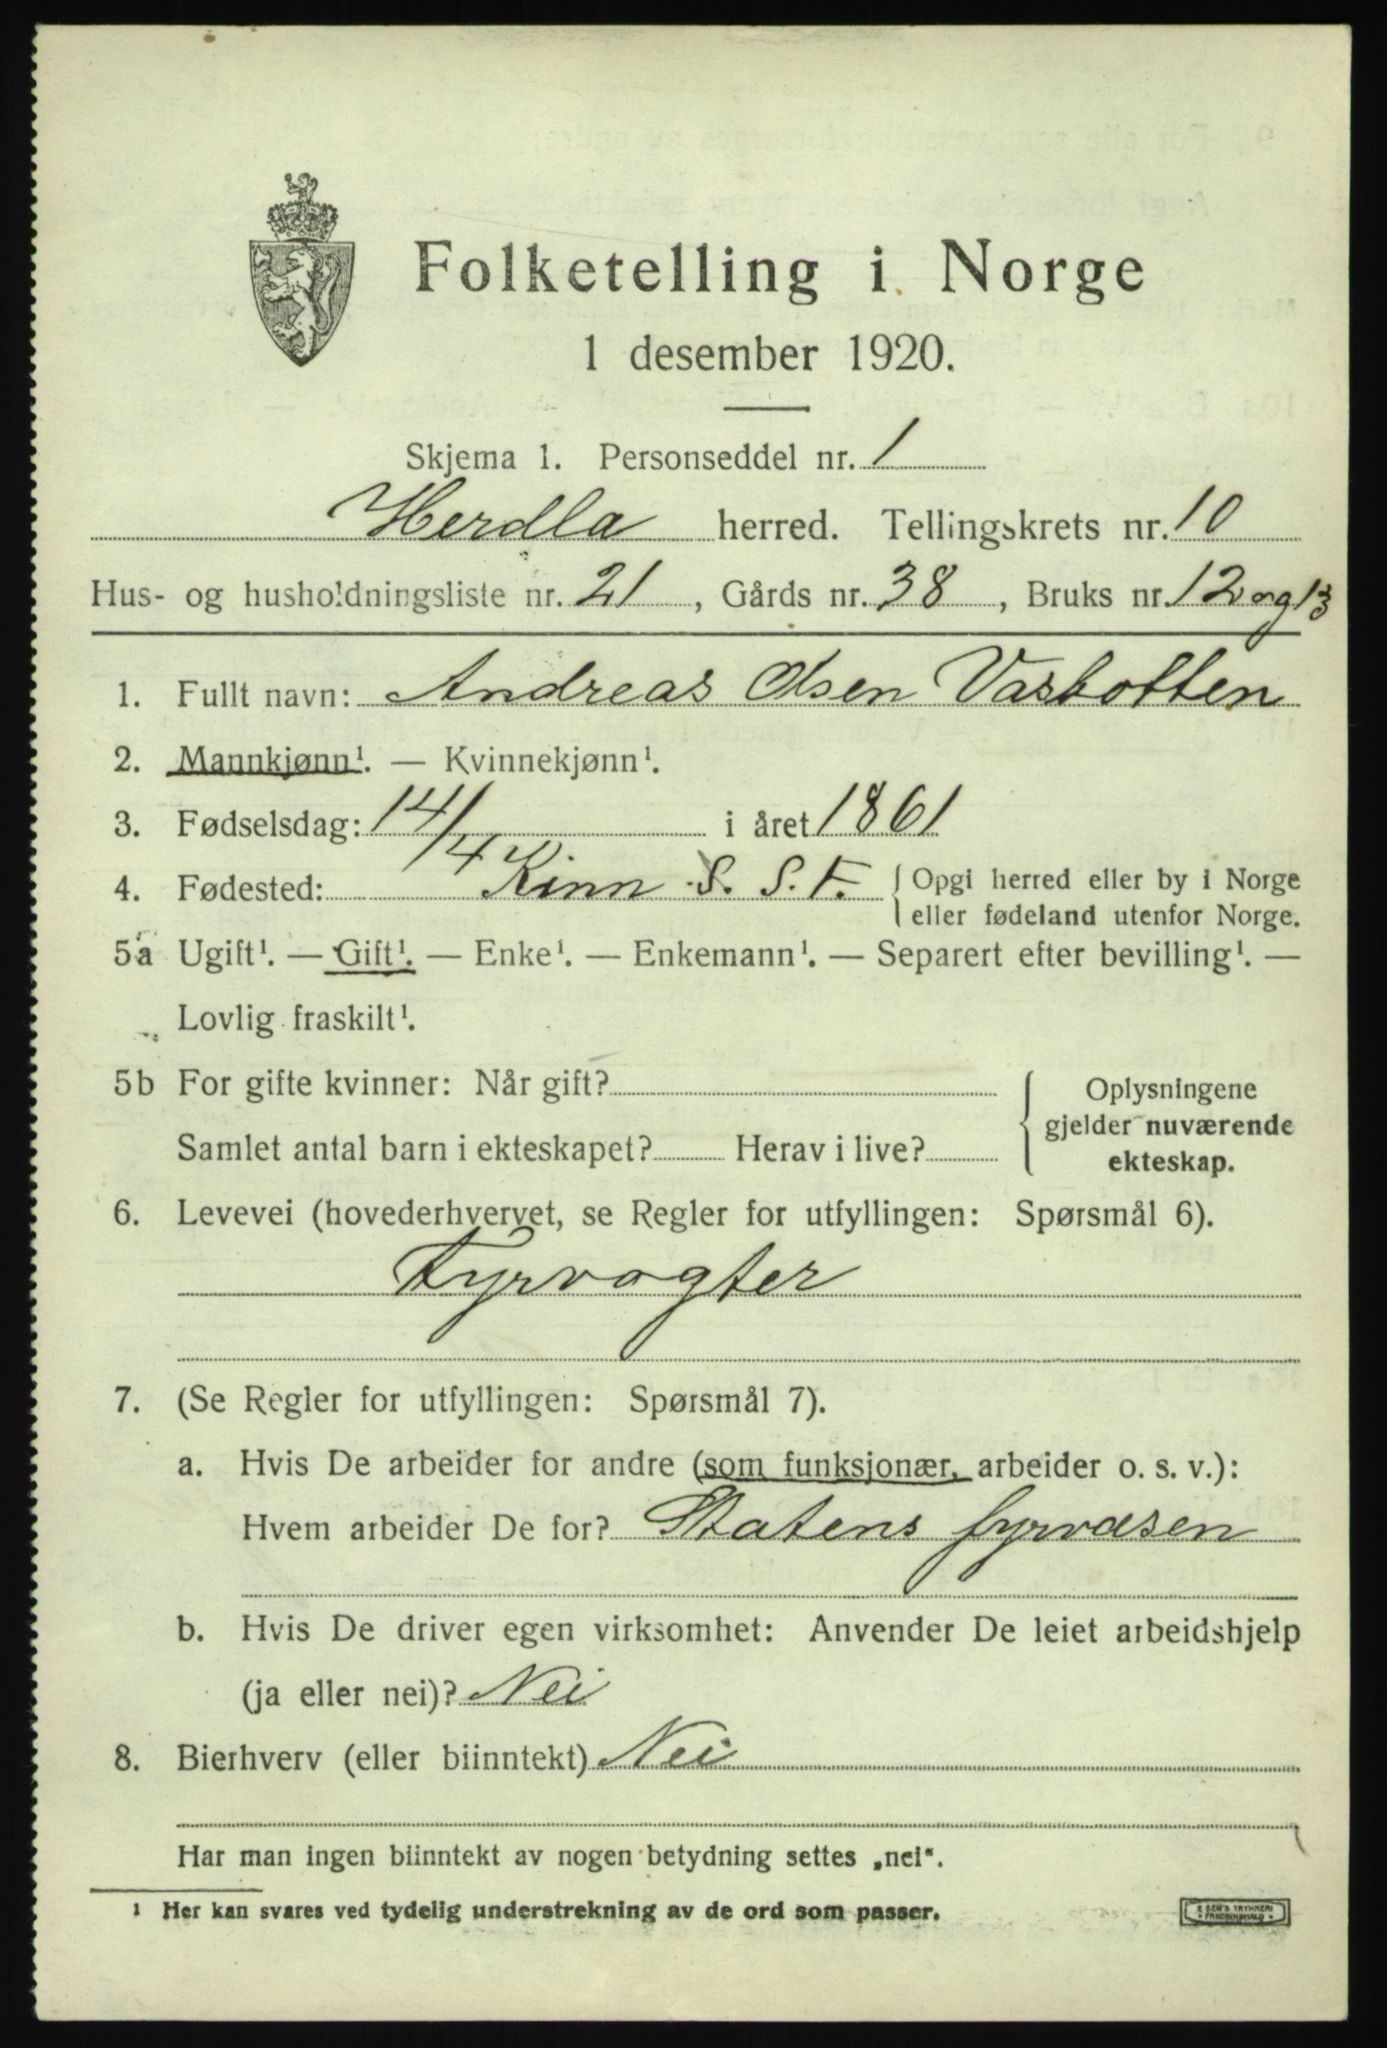 Folketelling i Norge
1 desember 1920.
Skjema 1. Personseddel nr. 1
Herdla herred. Tellingskrets nr. 10
Hus- og husholdningsliste nr. 21, Gårds nr. 38, Bruks nr. 12 og 13
1. Fullt navn: Andreas Olsen Vasbotten
2. Mannkjønn¹. — Kvinnekjønn¹.
3. Fødselsdag: 14/4 i året 1861
4. Fødested: Kinn S. S. F. { Opgi herred eller by i Norge
eller fødeland utenfor Norge.
5a Ugift¹. — Gift¹. — Enke¹. — Enkemann¹. — Separert efter bevilling¹. —
Lovlig fraskilt¹.
5b For gifte kvinner: Når gift?
Samlet antal barn i ekteskapet? Herav i live?
Oplysningene
gjelder nuværende
ekteskap.
6. Levevei (hovederhvervet, se Regler for utfyllingen: Spørsmål 6).
Fyrvogter
7. (Se Regler for utfyllingen: Spørsmål 7).
a. Hvis De arbeider for andre (som funksjonær, arbeider o. s. v.):
Hvem arbeider De for? Statens fyrvæsen
b. Hvis De driver egen virksomhet: Anvender De leiet arbeidshjelp
(ja eller nei)? Nei
8. Bierhverv (eller biinntekt) Nei
Har man ingen biinntekt av nogen betydning settes „nei“.
¹ Her kan svares ved tydelig understrekning av de ord som passer.
E SEM'S TRYKKERI
FREDRIKSHALD